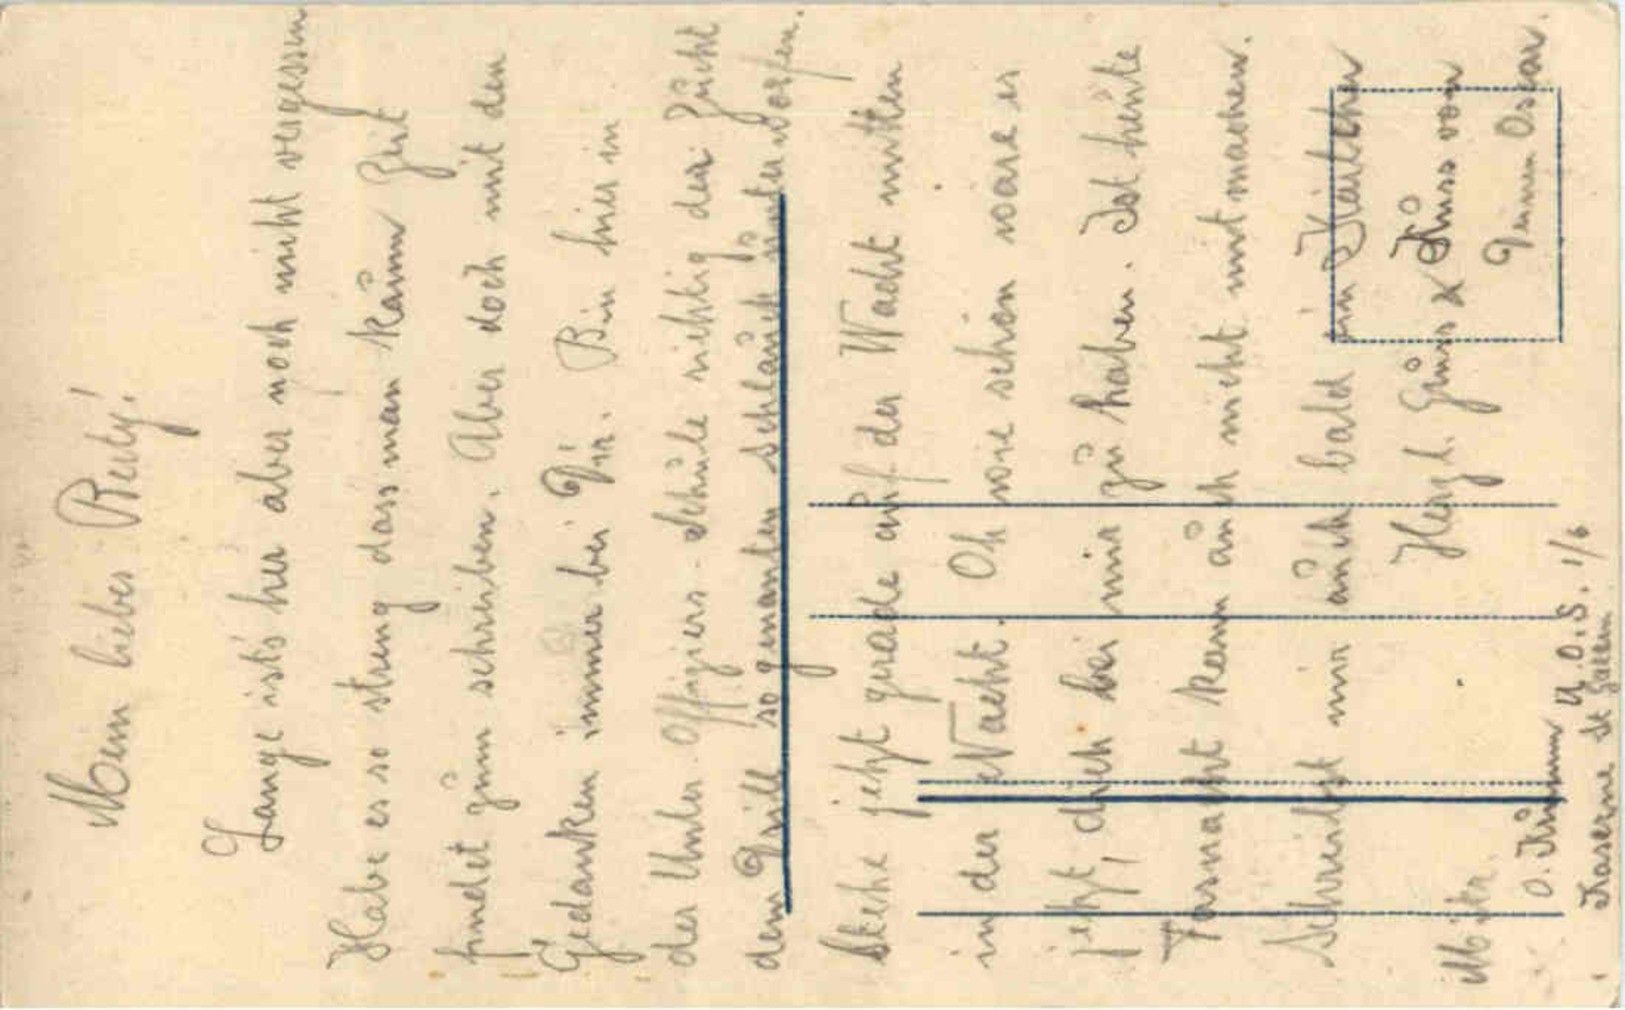 Mein liebes Reity!
Lange ists her aber noch nicht vergessen
Habe es so streng dass man kaum Zeit
findet zum schreiben. Aber doch mit den
Gedanken immer bei Dir. Bin hier in
der Unter-Offiziers-Schule richtig der Zucht
dem Drill so genanten Schlauch unterworfen.
Stehe jetzt gerade auf der Wacht mitten
in der Nacht. Oh wie schön wäre es
jetzt, dich bei mir zu haben. Ist heute
Fasnacht kann auch nicht mitmachen.
Schreibst mir auch bald ein Kärtchen
Herzl. Gruss & Kuss von
Deinem Oskar.
Mitr.
O. Krumm U.O.S. 1/6
Kaserne St Gallen